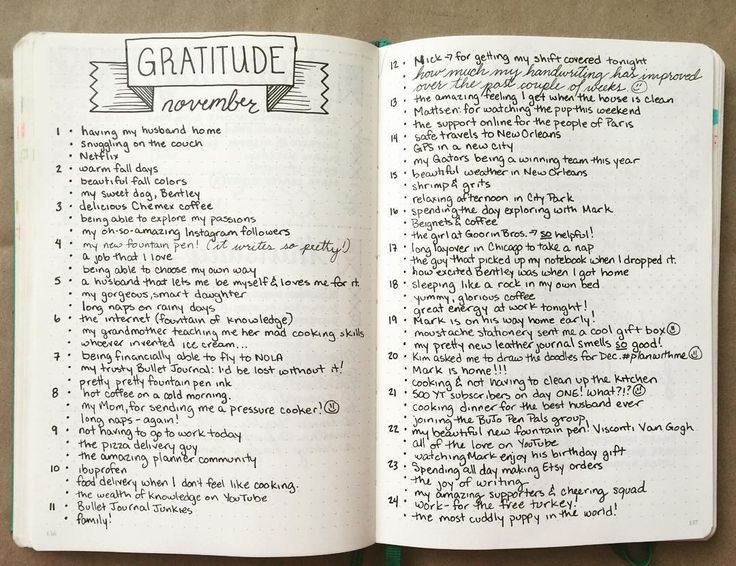 GRATITUDE
november
1 • having my husband home
• snuggling on the couch
• Netflix
2 • warm fall days
• beautiful fall colors
• my sweet dog, Bentley
3 • delicious Chemex coffee
• being able to explore my passions
• my oh-so-amazing Instagram followers
4 • my new fountain pen! (it writes so pretty!)
• a job that I love
• being able to choose my own way
5 • a husband that lets me be myself & loves me for it.
• my gorgeous, smart daughter
• long naps on rainy days
6 • the internet (fountain of knowledge)
• my grandmother teaching me her mad cooking skills
• whoever invented ice cream...
7 • being financially able to fly to NOLA
• my trusty Bullet Journal: I'd be lost without it!
• pretty pretty fountain pen ink
8 • hot coffee on a cold morning.
• my Mom, for sending me a pressure cooker! ☺
• long naps - again!
9 • not having to go to work today
• the pizza delivery guy
• the amazing planner community
10 • ibuprofen
• food delivery when I don't feel like cooking.
• the wealth of knowledge on YouTube
11 • Bullet Journal Junkies
• family!
136
12 • Nick → for getting my shift covered tonight
• how much my handwriting has improved
over the past couple of weeks ☺
13 • the amazing feeling I get when the house is clean
• Mattsen: for watching the pup this weekend
• the support online for the people of Paris
14 • safe travels to New Orleans
• GPS in a new city
• my Gators being a winning team this year
15 • beautiful weather in New Orleans
• shrimp & grits
• relaxing afternoon in City Park
16 • spending the day exploring with Mark
• Beignets & coffee
• the girl at Goorin Bros. → so helpful!
17 • long layover in Chicago to take a nap
• the guy that picked up my notebook when I dropped it.
• how excited Bentley was when I got home
18 • sleeping like a rock in my own bed
• yummy, glorious coffee
• great energy at work tonight!
19 • Mark is on his way home early!
• moustache stationery sent me a cool gift box ☺
• my pretty new leather journal smells so good!
20 • Kim asked me to draw the doodles for Dec. #planwithme ☺
• Mark is home!!!
• cooking & not having to clean up the kitchen
21 • 500 YT subscribers on day ONE! What?!? ☺
• cooking dinner for the best husband ever
• joining the BuJo Pen Pals group
22 • my beautiful new fountain pen! Visconti Van Gogh
• all of the love on YouTube
• watching Mark enjoy his birthday gift
23 • Spending all day making Etsy orders
• the joy of writing
• my amazing supporters & cheering squad
24 • work - for the free turkey.
• the most cuddly puppy in the world!
137